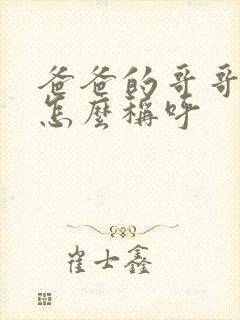 爸爸的哥哥
怎麼稱呼
崔士鑫